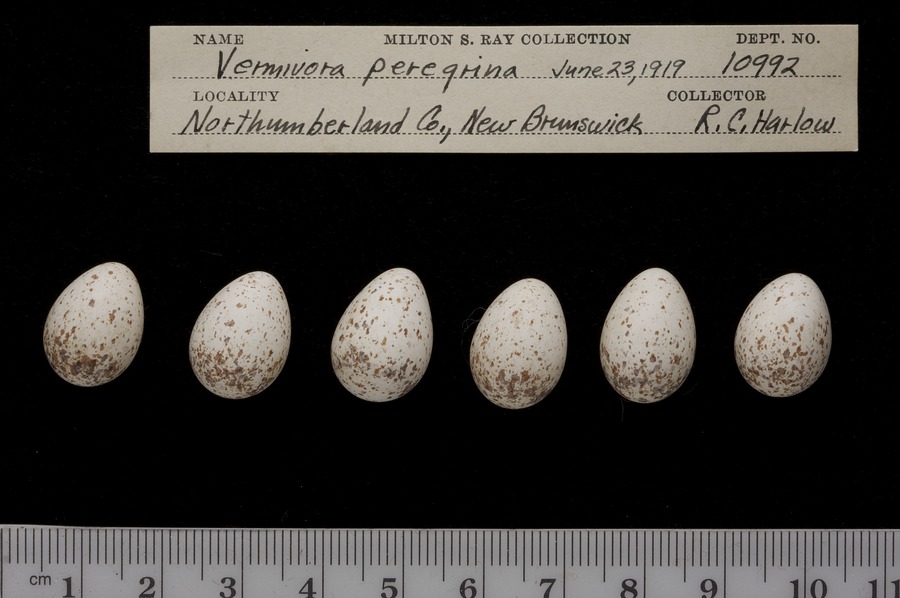 NAME MILTON S. RAY COLLECTION DEPT. NO.
Vermivora peregrina June 23, 1919 10992
LOCALITY COLLECTOR
Northumberland Co., New Brunswick R. C. Harlow
cm 1 2 3 4 5 6 7 8 9 10 11